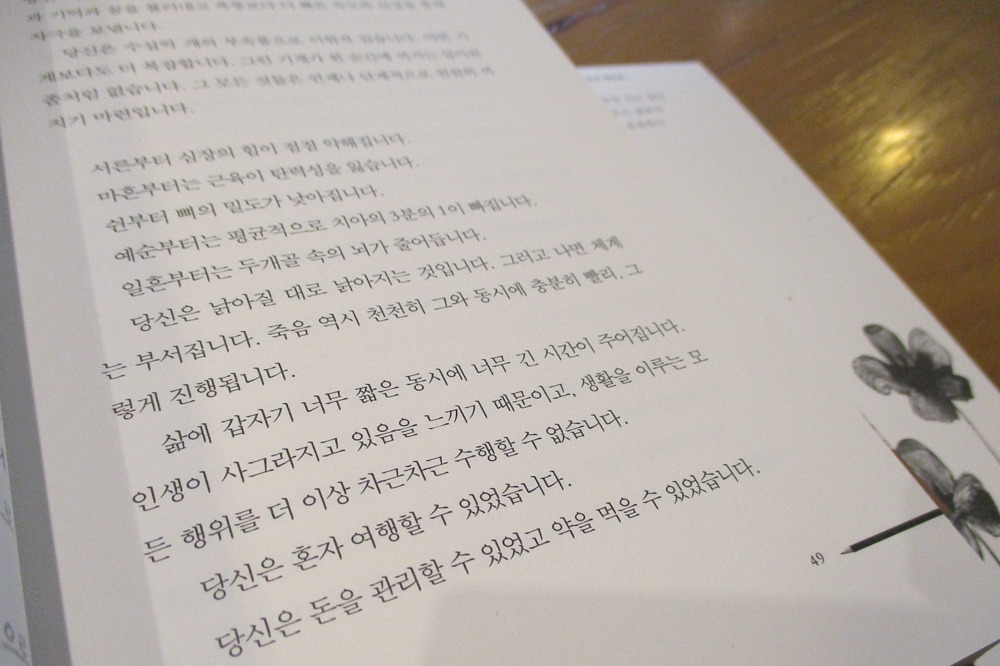 과 기억과
자극을 보냅니다.
당신은 수십억 개의 부속품으로 이뤄져 있습니다. 어떤 기
계보다도 더 복잡합니다. 그런 기계가 한 순간에 꺼지는 일이란
좀처럼 없습니다. 그 모든 것들은 언제나 단계적으로 천천히 꺼
지기 마련입니다.
서른부터 심장의 힘이 점점 약해집니다.
마흔부터는 근육이 탄력성을 잃습니다.
쉰부터 뼈의 밀도가 낮아집니다.
예순부터는 평균적으로 치아의 3분의 1이 빠집니다.
일흔부터는 두개골 속의 뇌가 줄어듭니다.
당신은 낡아질 대로 낡아지는 것입니다. 그러고 나면 체계
는 부서집니다. 죽음 역시 천천히 그와 동시에 충분히 빨리, 그
렇게 진행됩니다.
삶에 갑자기 너무 짧은 동시에 너무 긴 시간이 주어집니다.
인생이 사그라지고 있음을 느끼기 때문이고, 생활을 이루는 모
든 행위를 더 이상 차근차근 수행할 수 없습니다.
당신은 혼자 여행할 수 있었습니다.
당신은 돈을 관리할 수 있었고 약을 먹을 수 있었습니다.
49